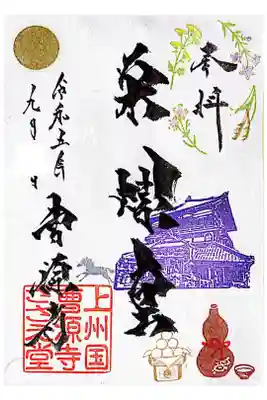 奉拝
栄螺堂
曹源寺
令和五年
九月 日
上州国
曹源寺
さざえ堂